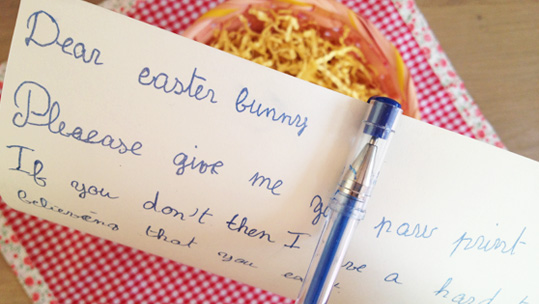 Dear easter bunny
Pleease give me paw print
If you don't then I a hard
believing that you